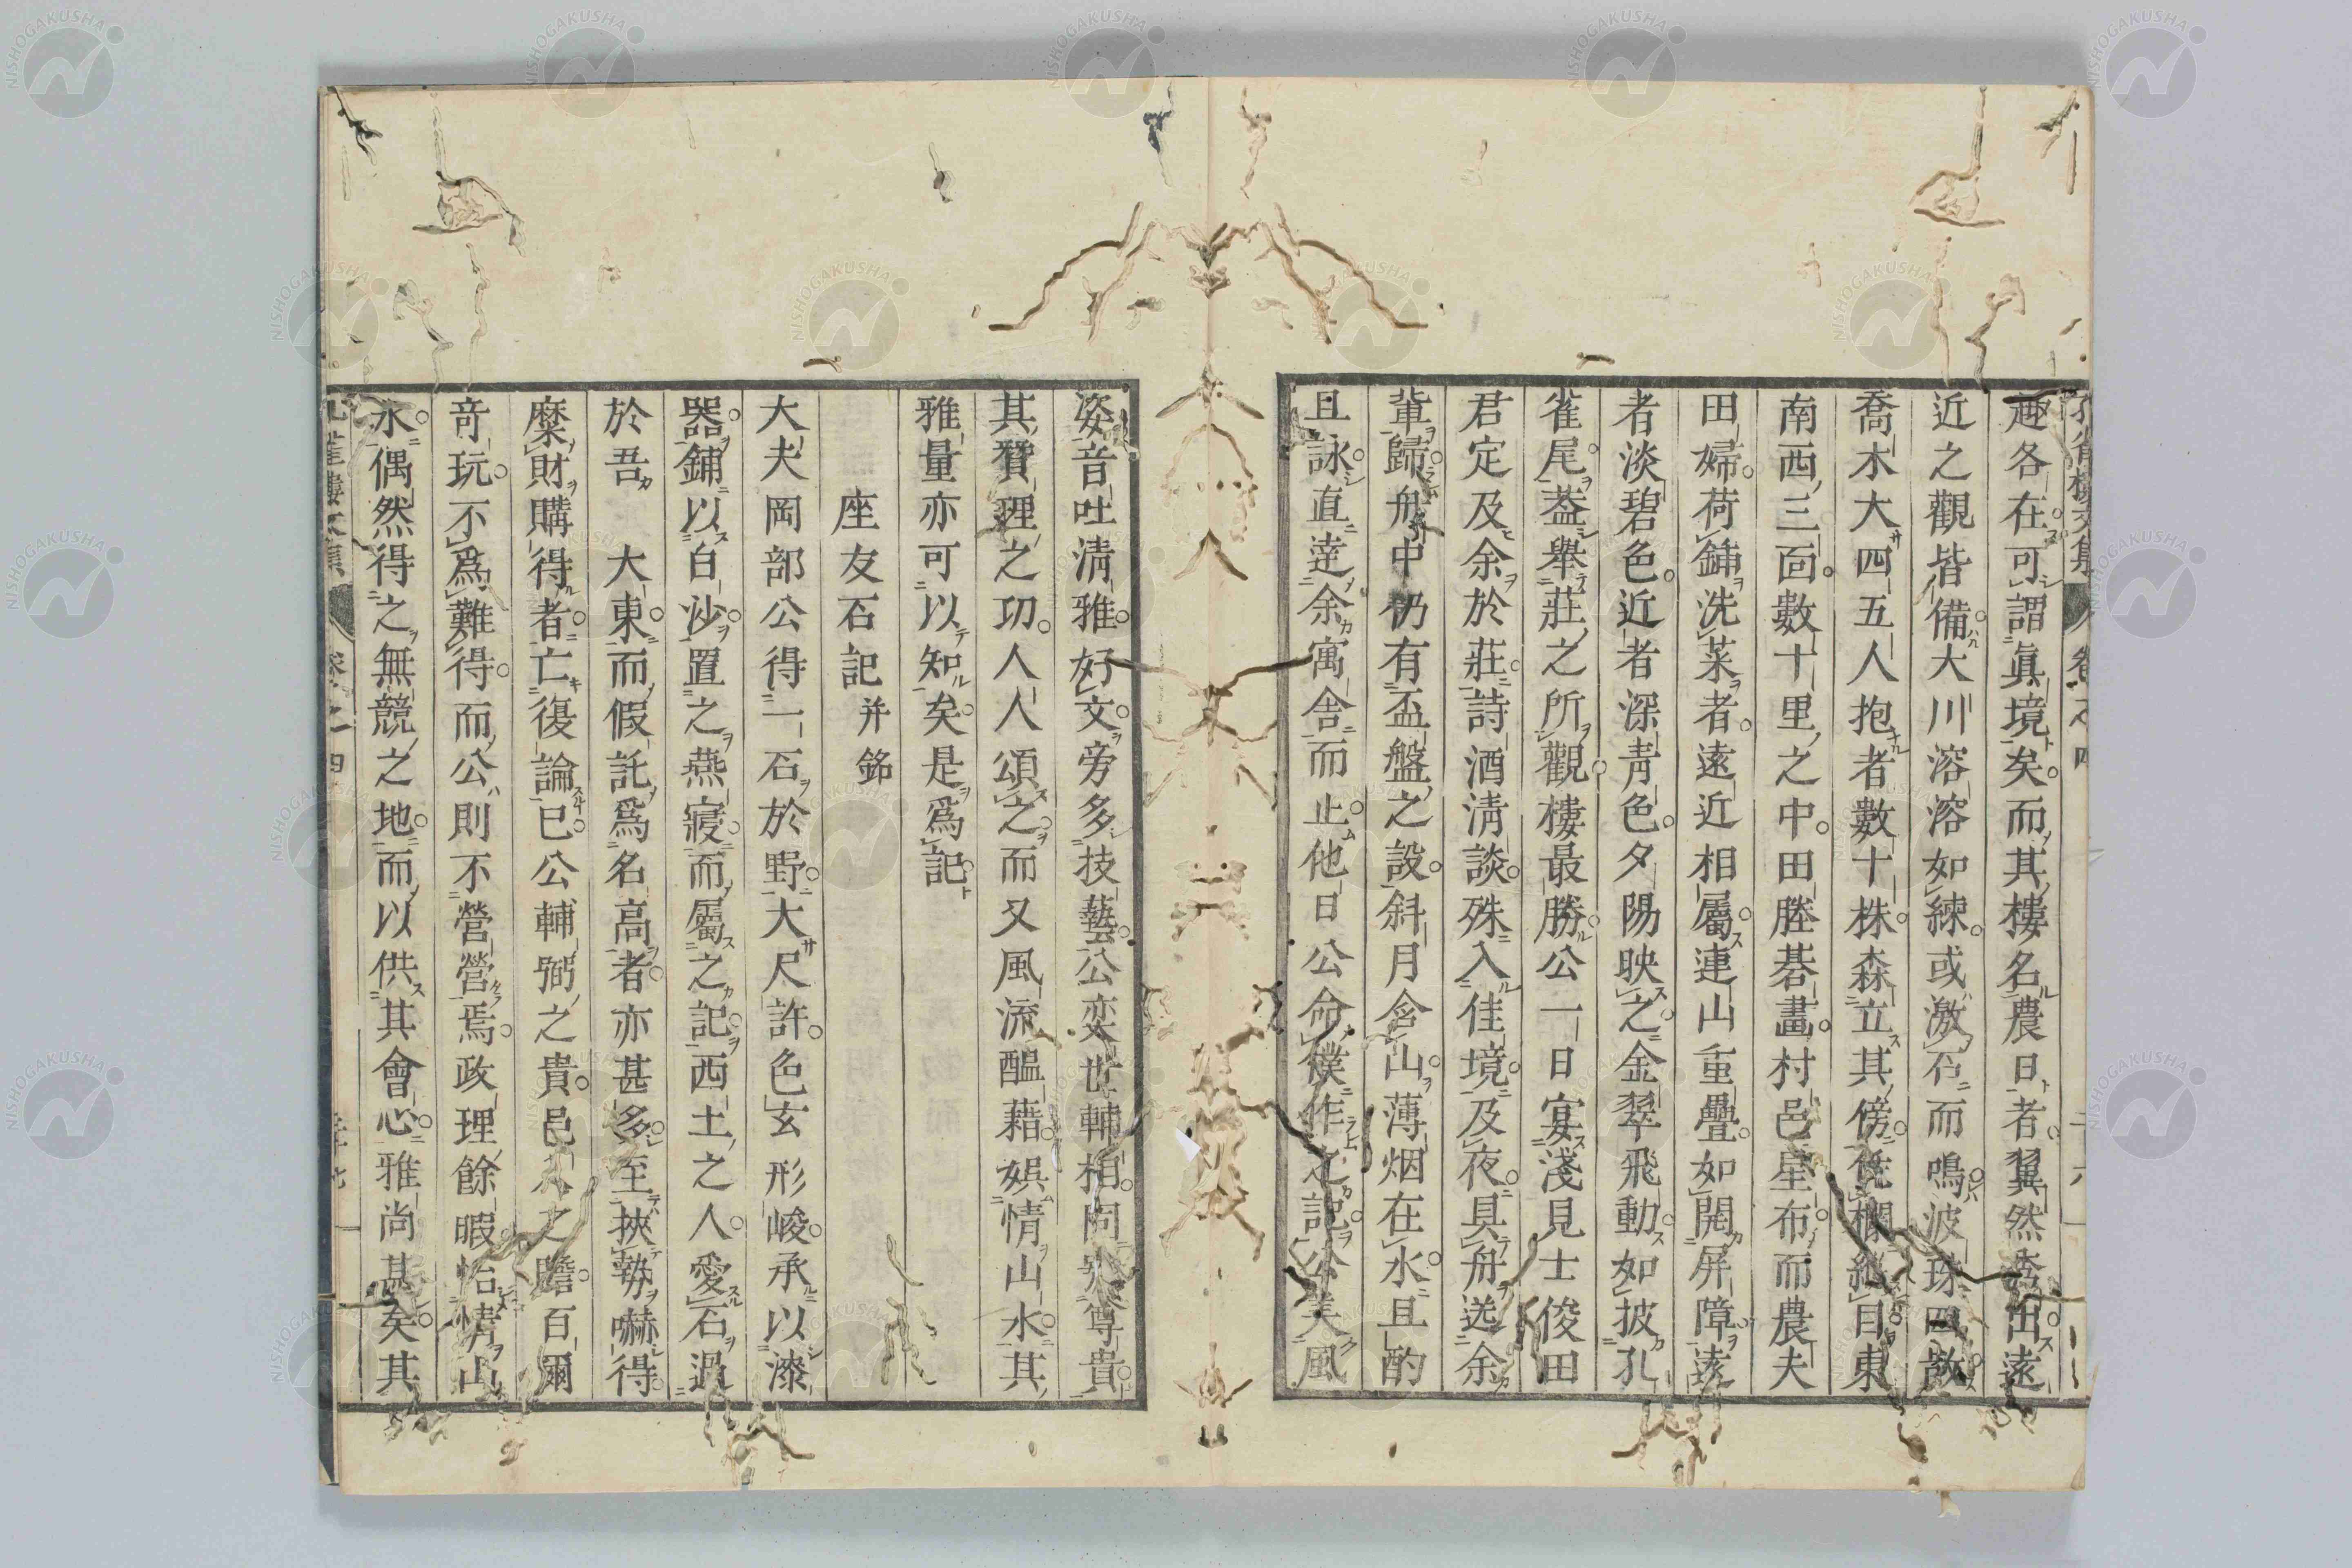 趣各在可謂眞境矣而其樓名農日者翼然秀出遠
近之觀皆備大川溶溶如練或激石而鳴波珠四散
喬木大四五人抱者數十株森立其傍凭欄縱目東
南西三面數十里之中田塍碁畫村邑星布而農夫
田婦荷鋪洗菜者遠近相屬連山重疊如開屏障遠
者淡碧色近者深靑色夕陽映之金翠飛動如披孔
雀尾蓋舉莊之所觀樓最勝公一日宴淺見士俊田
君定及余於莊詩酒淸談殊入佳境及夜具舟送余
輩歸舟中仍有盃盤之設斜月含山薄烟在水且酌
且詠直達余寓舍而止他日公命僕作之記公美風
姿音吐淸雅好文旁多技藝公奕世輔相同宗尊貴
其贊理之功人人頌之而又風流醞藉娯情山水其
雅量亦可以知矣是爲記
座友石記 并銘
大夫岡部公得一石於野大尺許色玄形峻承以漆
器鋪以白沙置之燕寢而屬之記西土之人愛石過
於吾 大東而假託爲名高者亦甚多至挾勢嚇得
糜財購得者亡復論已公輔弼之貴邑入之贍百爾
奇玩不爲難得而公則不營營焉政理餘暇怡情山
水偶然得之無競之地而以供其會心雅尚甚矣其
孔雀樓文集 卷之四
NISHOGAKUSHA